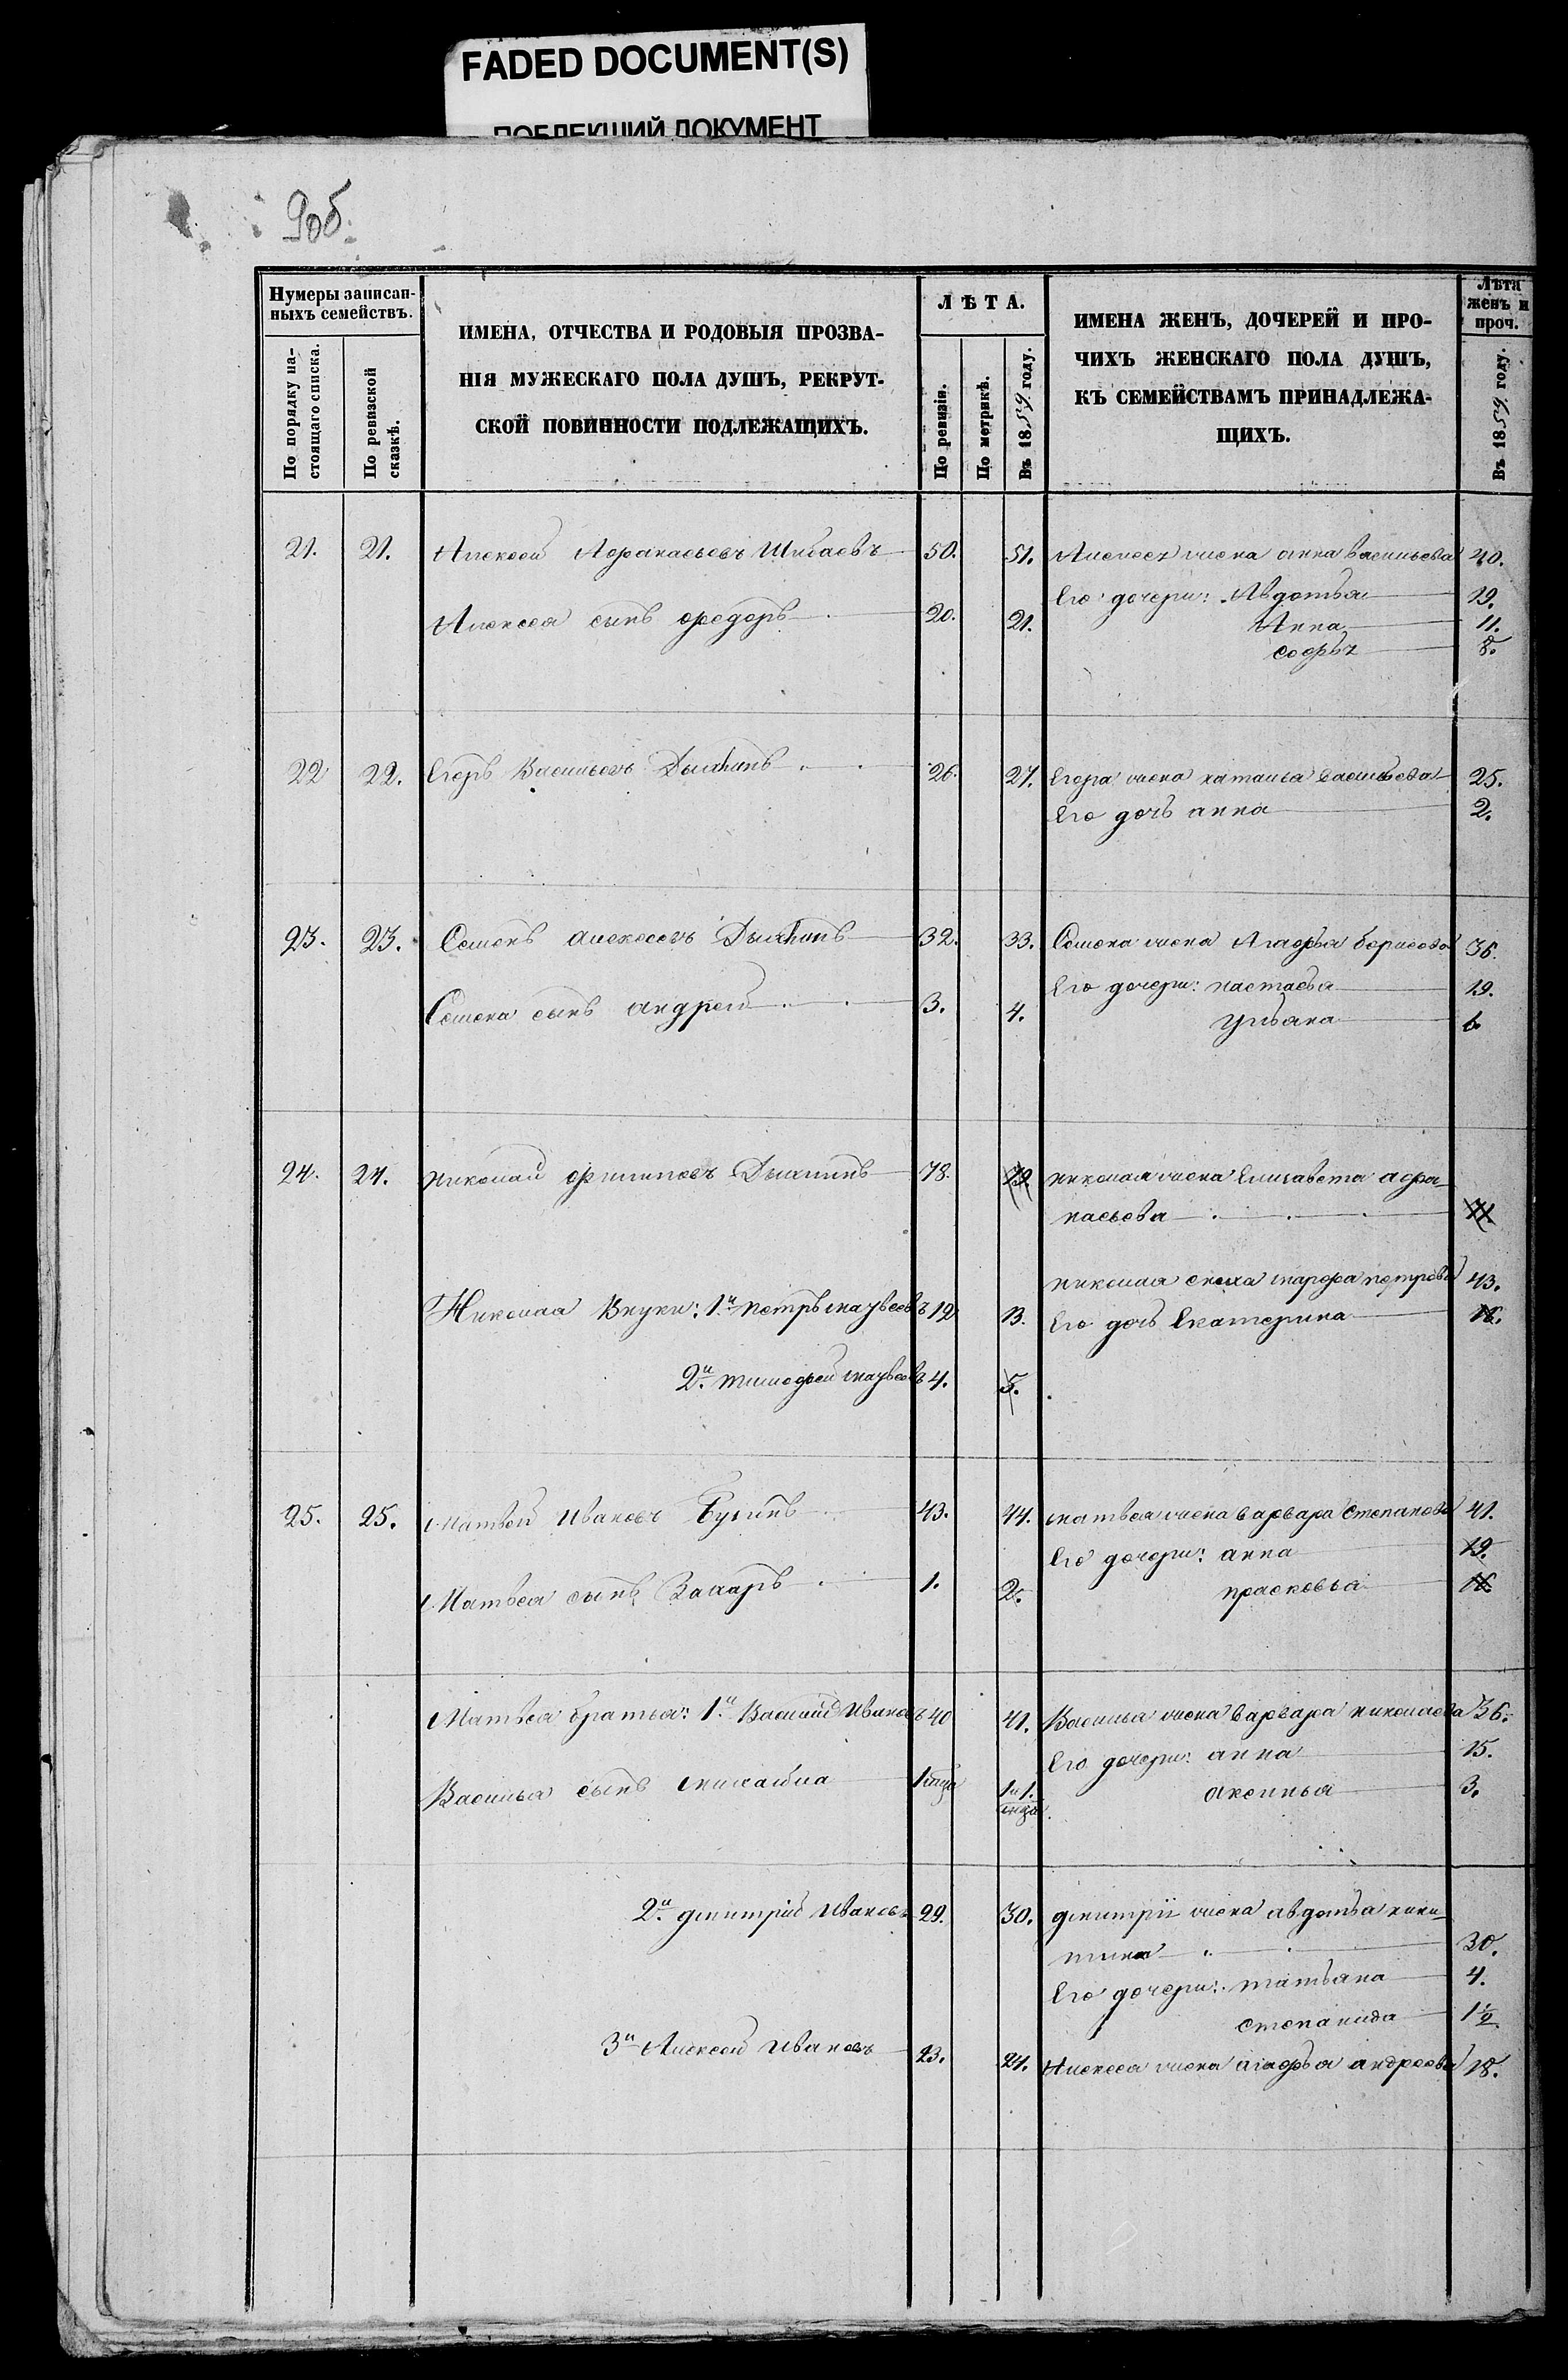 FADED DOCUMENT(S)
ПОБЛЕКШИЙ ДОКУМЕНТ
90б.
Нумеры записан-
ныхъ семействъ.
По порядку на-
стоящаго списка.
По ревизской
сказкѣ.
ИМЕНА, ОТЧЕСТВА И РОДОВЫЯ ПРОЗВА-
НІЯ МУЖЕСКАГО ПОЛА ДУШЪ, РЕКРУТ-
СКОЙ ПОВИННОСТИ ПОДЛЕЖАЩИХЪ.
ЛѢТА.
По ревизіи.
По метрикѣ.
Въ 1859 году.
ИМЕНА ЖЕНЪ, ДОЧЕРЕЙ И ПРО-
ЧИХЪ ЖЕНСКАГО ПОЛА ДУШЪ,
КЪ СЕМЕЙСТВАМЪ ПРИНАДЛЕЖА-
ЩИХЪ.
Лѣта
женъ и
проч.
Въ 1859 году.
21. 21. Алексей Афанасьевъ Шибаевъ 50. 51. Алексея жена анна васильева 40.
Его дочери: Авдотья 19.
Алексея сынъ федоръ 20. 21. Анна 11.
софья 8.
22 22. Егоръ Васильевъ 26. 27. Егора жена наталья васильева 25.
Его дочь анна 2.
23. 23. Семенъ алексеевъ 32. 33. Семена жена Агафья борисова 36.
Его дочери: настасья 19.
Семена сынъ андрей 3. 4. Ульяна 6.
24. 24. николай филиповъ 78. 79. николая жена Елисавета афа-
насьева 71
николая сноха марфа петрова 43.
Николая Внуки: 1й петръ матвеевъ 12 13. Его дочь Екатерина 16.
2й тимофей матвеевъ 4. 5.
25. 25. матвей Ивановъ 43. 44. матвея жена варвара степанова 41.
Его дочери: анна 19.
Матвея сынъ Захаръ 1. 2. прасковья 16.
Матвея братья: 1й Василий Ивановъ 40 41. Василья жена варвара николаева 36.
Его дочери: анна 15.
Василья сынъ михайла аксинья 3.
2й дмитрий Ивановъ 29. 30. дмитрия жена авдотья ники-
тина 30.
Его дочери: татьяна 4.
степанида 1½
3й Алексей Ивановъ 23. 24. Алексея жена агафья андреева 18.